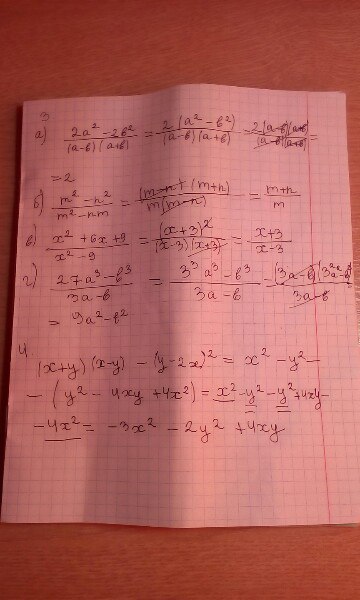 3
а) (2a² - 2b²)/((a-b)(a+b)) = (2(a² - b²))/((a-b)(a+b)) = (2(a-b)(a+b))/((a-b)(a+b)) =
= 2
б) (m² - n²)/(m² - nm) = ((m-n)(m+n))/(m(m-n)) = (m+n)/m
в) (x² + 6x + 9)/(x² - 9) = (x+3)²/((x-3)(x+3)) = (x+3)/(x-3)
г) (27a³ - b³)/(3a - b) = (3³a³ - b³)/(3a - b) =
= 9a² - b²
4.
(x+y)(x-y) - (y-2x)² = x² - y² -
- (y² - 4xy + 4x²) = x² - y² - y² + 4xy -
- 4x² = -3x² - 2y² + 4xy